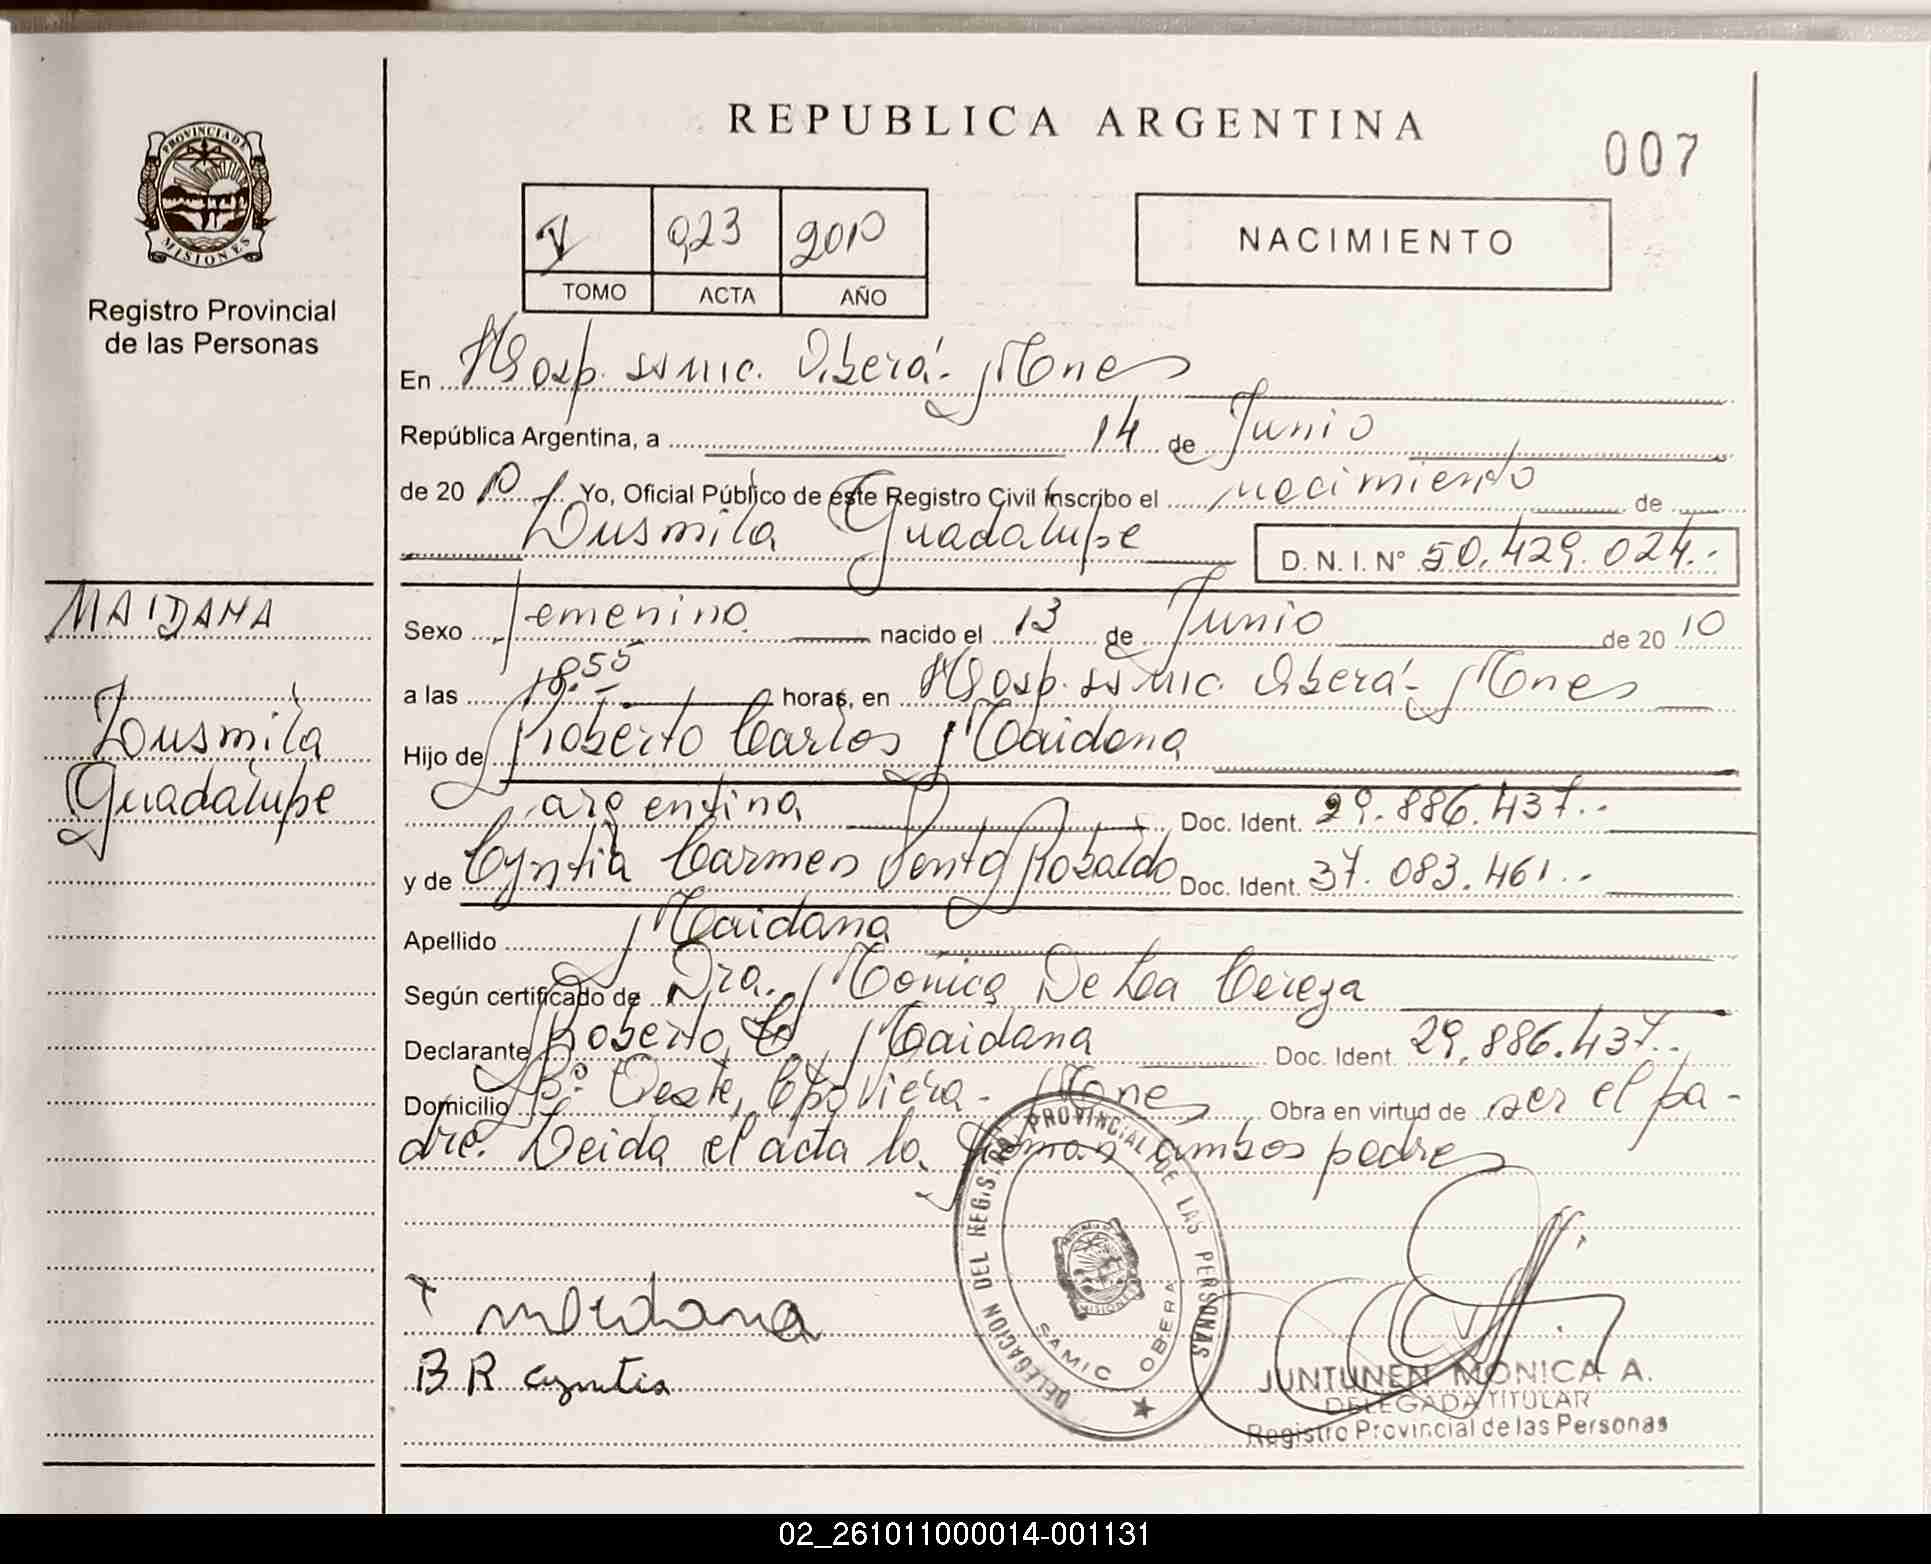 REPUBLICA ARGENTINA
007
PROVINCIA DE MISIONES
Registro Provincial
de las Personas
V 023 2010
TOMO ACTA AÑO
NACIMIENTO
En Hosp. ssmic. Oberá - Mnes
República Argentina, a 14 de Junio
de 2010 Yo, Oficial Público de este Registro Civil inscribo el nacimiento de
Lusmila Guadalupe D. N. I. N° 50.429.024.-
MAIDANA
Lusmila
Guadalupe
Sexo femenino nacido el 13 de Junio de 2010
a las 18.55 horas, en Hosp. ssmic. Oberá - Mnes
Hijo de Roberto Carlos Maidana
argentina Doc. Ident. 29.886.437.-
y de Cyntia Carmen Robaldo Doc. Ident. 37.083.461.-
Apellido Maidana
Según certificado de Dra. Monica De La Cereza
Declarante Roberto C. Maidana Doc. Ident. 29.886.437.-
Domicilio B° Oeste, Cpo Viera - Mnes Obra en virtud de ser el pa-
dre. Leida el acta la firman ambos padres
DELEGACION DEL REGISTRO PROVINCIAL DE LAS PERSONAS
MISIONES
SAMIC OBERA
Maidana
B R Cyntia
JUNTUNEN MONICA A.
DELEGADA TITULAR
Registro Provincial de las Personas
02_261011000014-001131